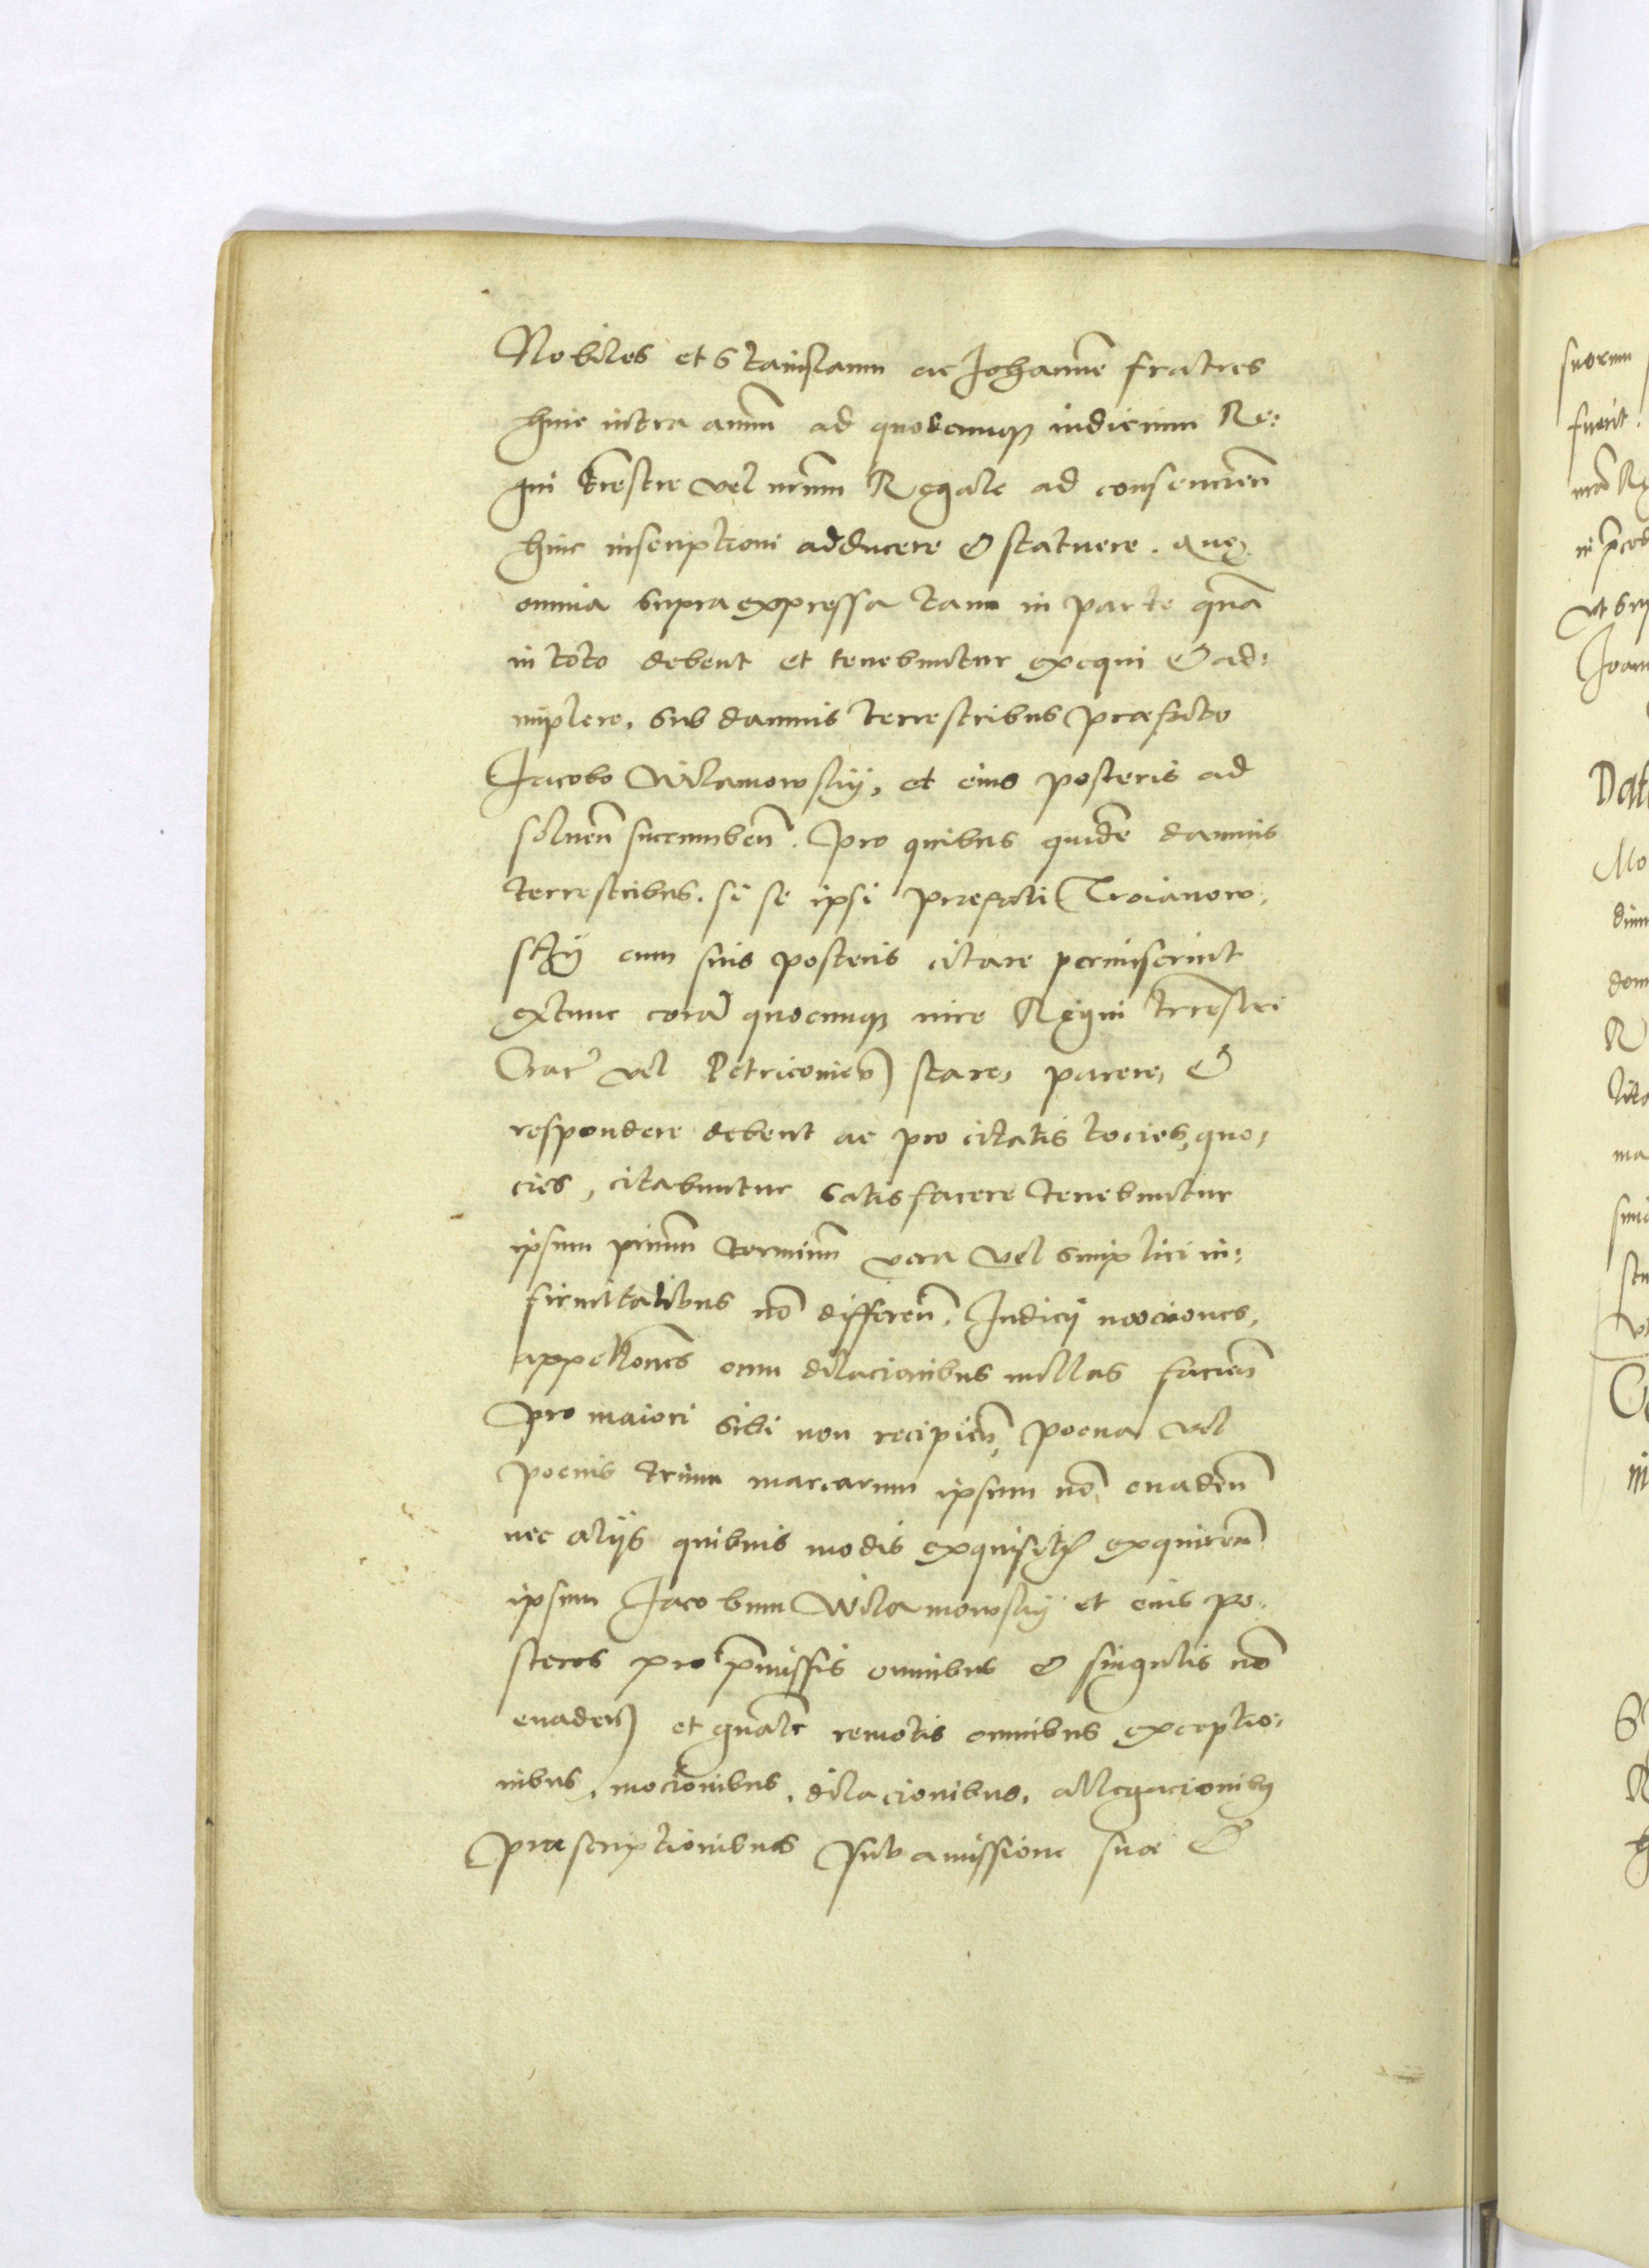 Nobiles et Stanislaum ac Johannē fratres
huic intra annū ad quodcunqꝫ iudicium Re:
gni trēstre vel nrūm Regale ad consencien̄
huic inscriptioni adducere & statuere. Que
omnia supraexpressa tam in parte quā
in toto debent et tenebuntur exequi & ad:
implere, sub damnis terrestribus præfato
Jacobo Wilamowskij, et eius posteris ad
soluen̄ succumben̄. Pro quibus quidē damnis
terrestribus. si se ipsi præfati Troianow:
skij cum suis posteris citare permiserint
extunc corā quocunqꝫ iure Regni trrēstri
Crac̄ vel Petricouien̄ stare, parere, &
respondere debent ac pro citatis tocies, quo:
cies, citabuntur satisfacere tenebuntur
ipsum primū terminū vera vel simplici in:
firmitatibus nō differen̄. Judicij mociones,
appellōnes cum dilacionibus nullas facien̄
Pro maiori sibi non recipien̄, poena vel
poenis trium marcarum ipsum nō euaden̄
nec alijs quibuis modis exquisitis exquiren̄
ipsum Jacobum Wilamowskij et eius po:
steros pro p̄missis omnibus & singulis nō
euaden̄ et gnālr̄ remotis omnibus exceptio:
nibus, mocionibus, dilacionibus, allegacionibꝫ
præscriptionibus sub amissione suæ &
suorum
fuerit.
in
Dat
Mo
R
ma